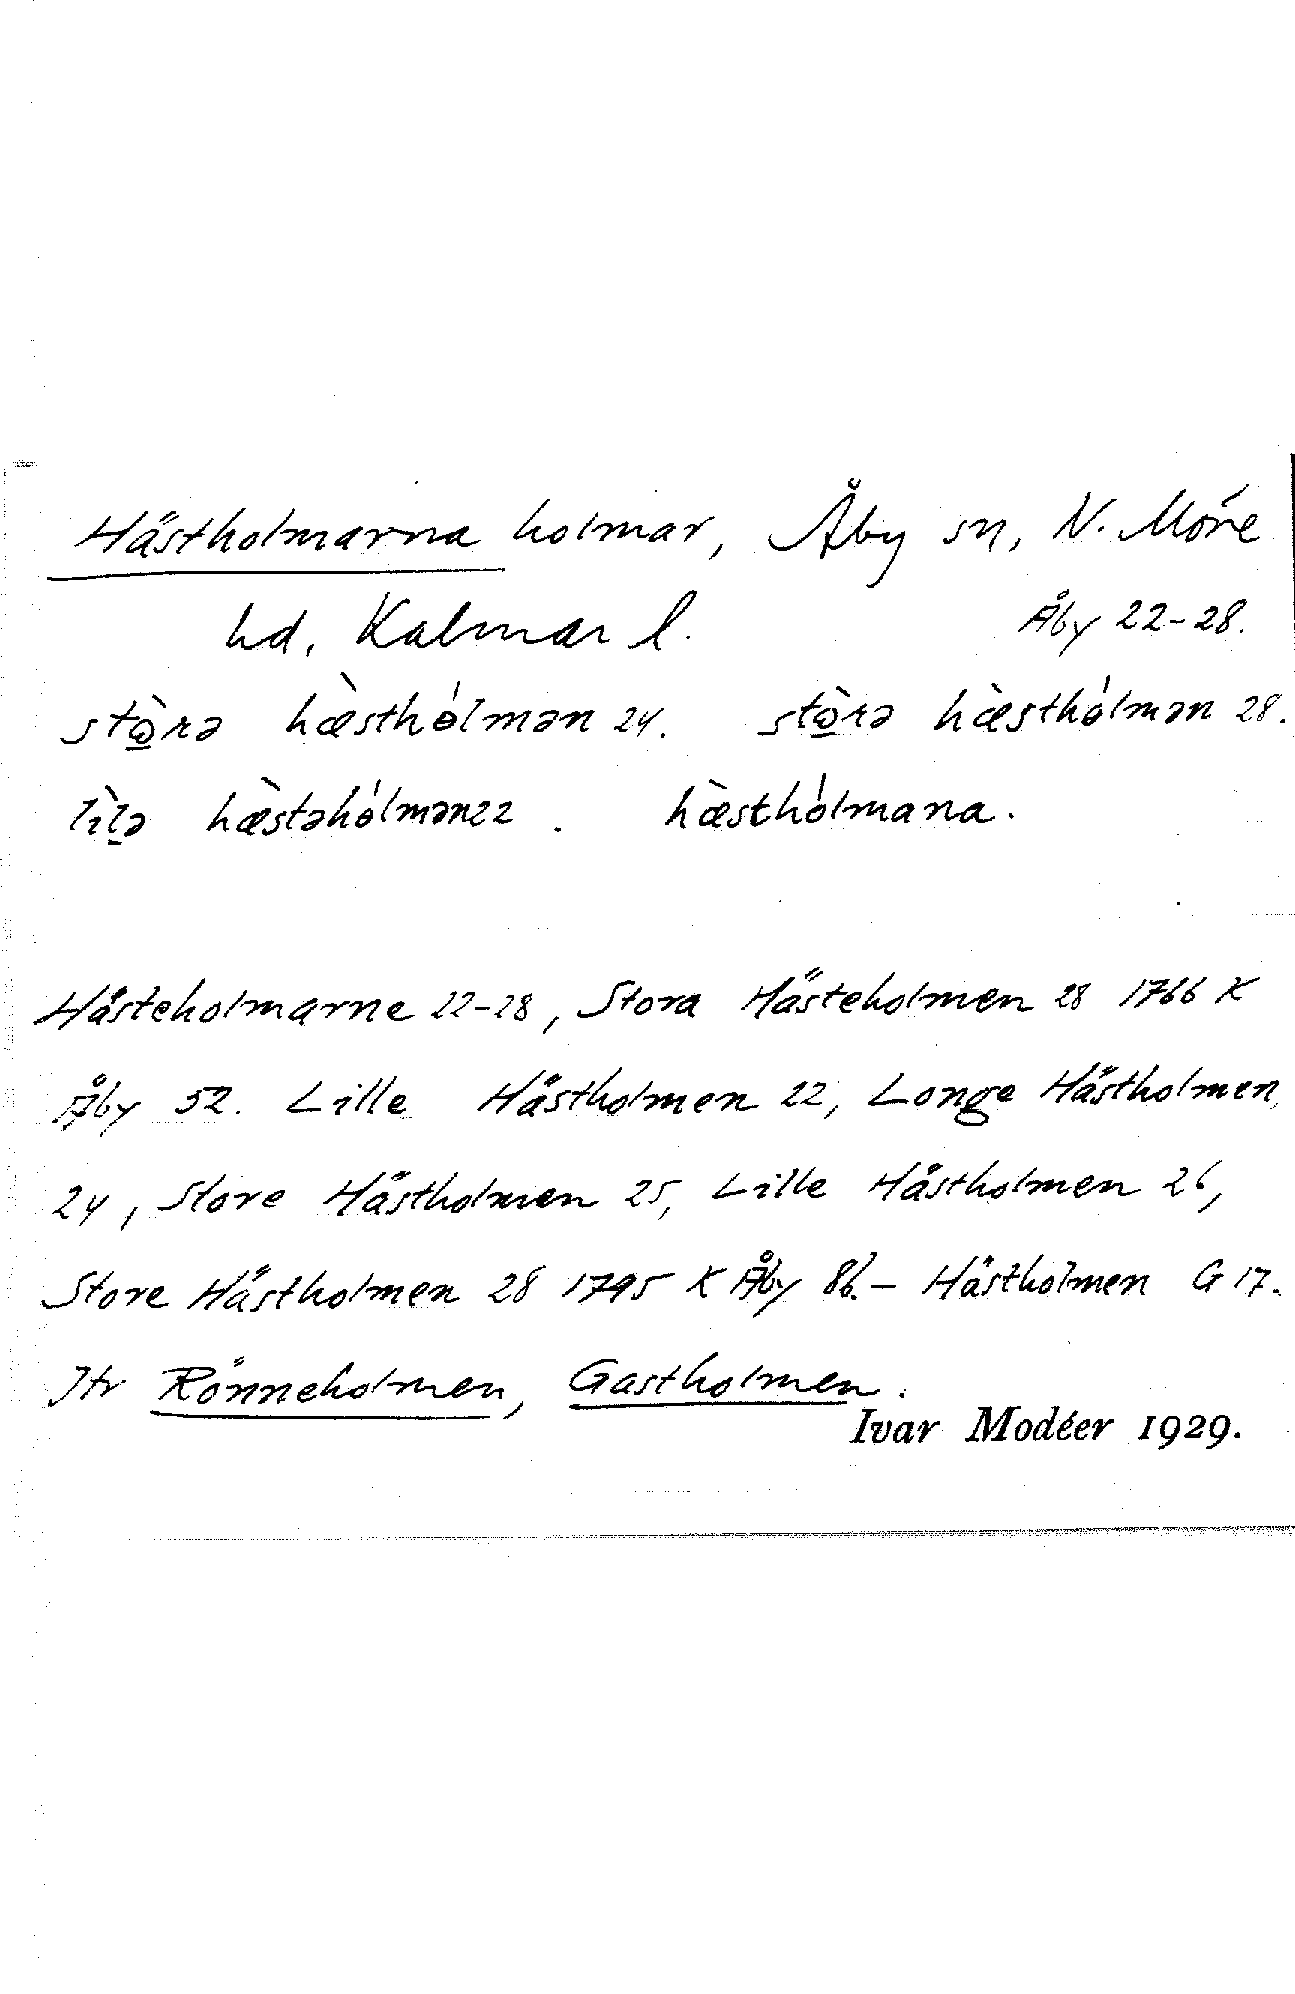 Hästholmarna holmar, Åby sn, N. Möre
hd, Kalmar l. Åby 22-28.
stὼrə hæ̀sthól̀mən 24. stὼrə hæ̀sthólmən 28.
lìlə hæ̀stəhólmən 22. hæ̀sthólmana.
Hästeholmarne 22-28, Stora Hästeholmen 28 1766 K
Åby 52. Lille Hästholmen 22, Longe Hästholmen
24, Store Hästholmen 25, Lille Hästholmen 26,
Store Hästholmen 28 1795 K Åby 86. - Hästholmen G 17.
Jfr Rönneholmen, Gastholmen.
Ivar Modéer 1929.